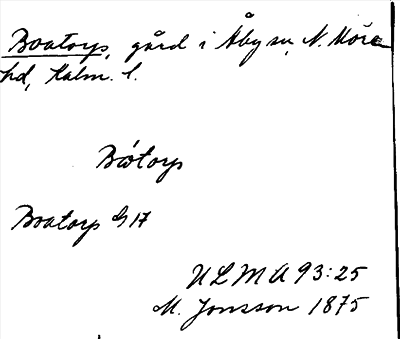 Boatorp, gård i Åby sn, N. Möre
hd, Kalm. l.
Båtorp
Boatorp G 17
ULMA 93:25
M. Jonsson 1875